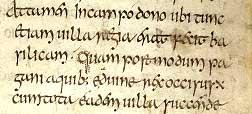 Attamen In campo dono ubi tunc
etiam uilla regia erat fecit ba
silicam. Quam postmodum pa
gani aquib; eduine rex occisus
cum tota eadem uilla succende